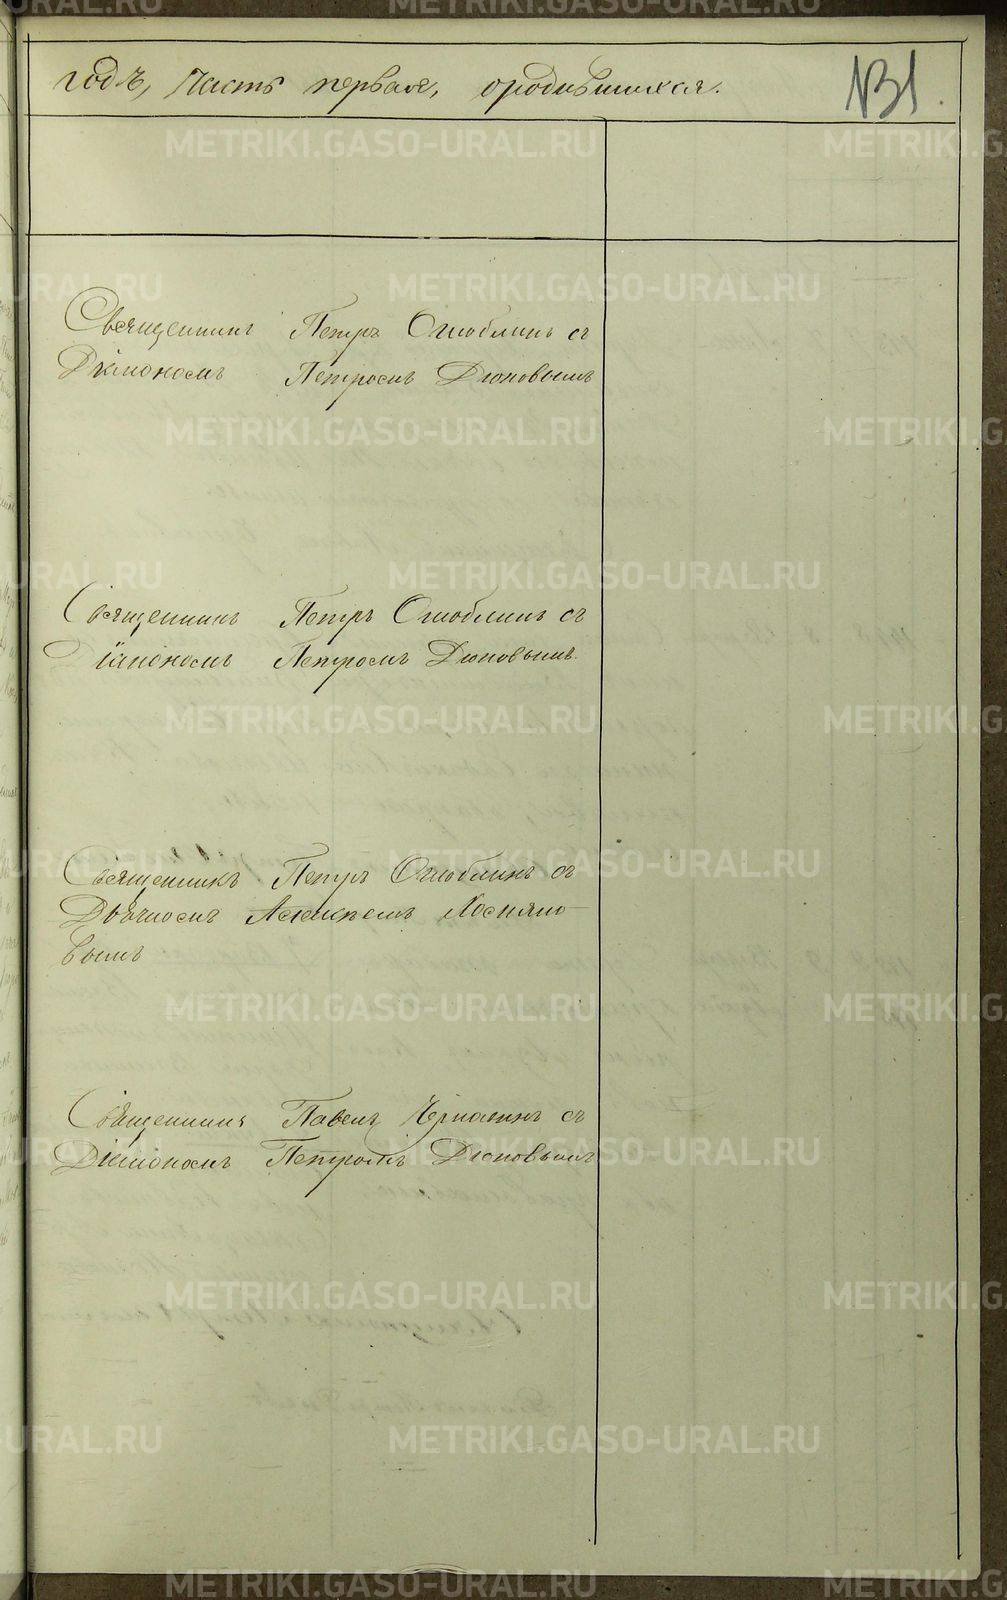 годъ, Часть первая, о родившихся.
131.
Священникъ Петръ Оглоблинъ съ
Діакономъ Петромъ Дюповымъ
Священникъ Петръ Оглоблинъ съ
Діакономъ Петромъ Дюповымъ.
Священникъ Петръ Оглоблинъ съ
Дьячкомъ
вымъ
Священникъ Павелъ съ
Діакономъ Петромъ Дюповымъ
METRIKI.GASO-URAL.RU